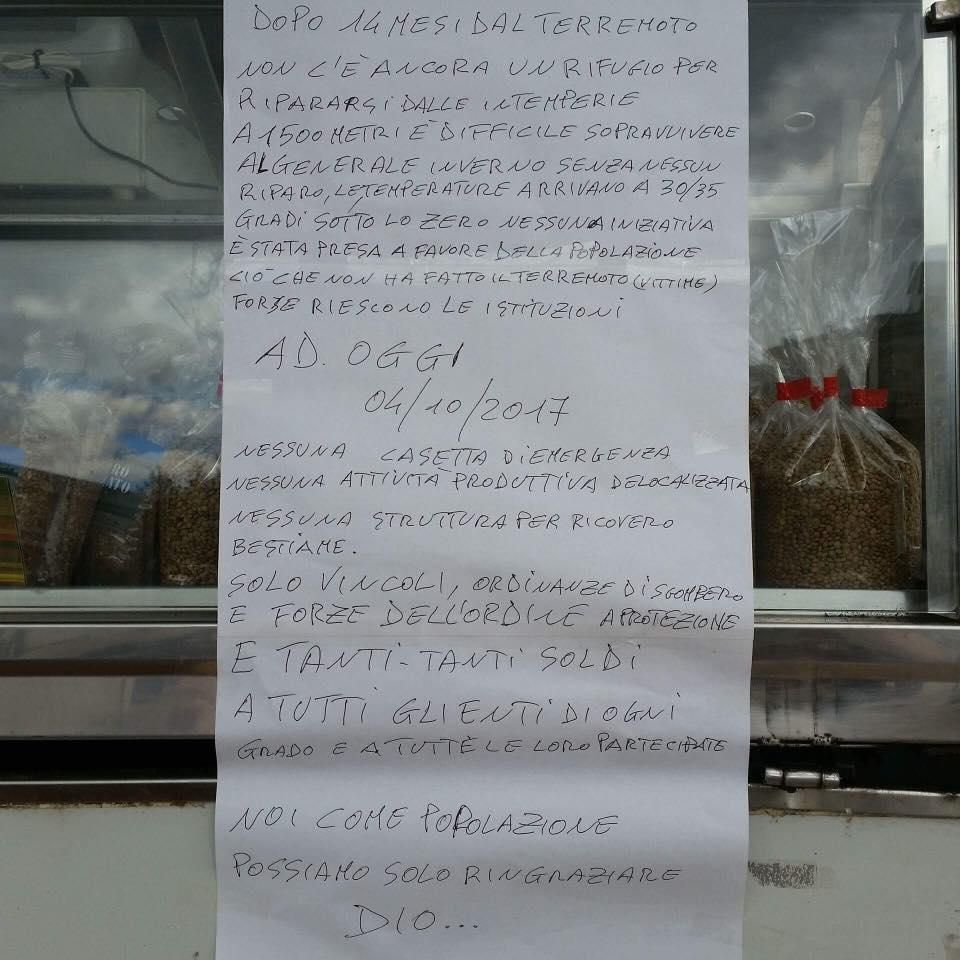 DOPO 14 MESI DAL TERREMOTO
NON C'È ANCORA UN RIFUGIO PER
RIPARARSI DALLE INTEMPERIE
A 1500 METRI È DIFFICILE SOPRAVVIVERE
AL GENERALE INVERNO SENZA NESSUN
RIPARO, LE TEMPERATURE ARRIVANO A 30/35
GRADI SOTTO LO ZERO NESSUNA INIZIATIVA
È STATA PRESA A FAVORE DELLA POPOLAZIONE
CIÒ CHE NON HA FATTO IL TERREMOTO (VITTIME)
FORSE RIESCONO LE ISTITUZIONI
AD. OGGI
04/10/2017
NESSUNA CASETTA DI EMERGENZA
NESSUNA ATTIVITÀ PRODUTTIVA DELOCALIZZATA
NESSUNA STRUTTURA PER RICOVERO
BESTIAME.
SOLO VINCOLI, ORDINANZE DI SGOMBERO
E FORZE DELL'ORDINE A PROTEZIONE
E TANTI-TANTI SOLDI
A TUTTI GLI ENTI DI OGNI
GRADO E A TUTTE LE LORO PARTECIPATE
NOI COME POPOLAZIONE
POSSIAMO SOLO RINGRAZIARE
DIO...